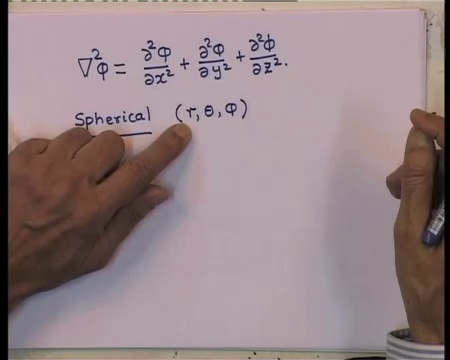 ∇²φ = ∂²φ/∂x² + ∂²φ/∂y² + ∂²φ/∂z².
Spherical (r, θ, φ)